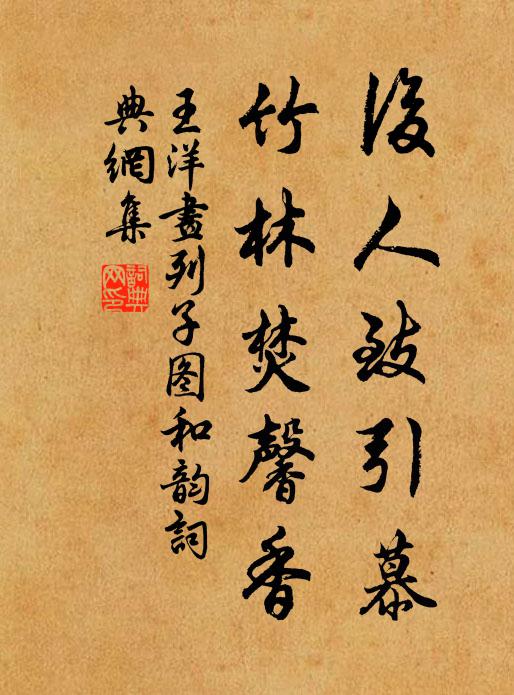 後人致引慕
竹林焚馨香
王洋畫列子图和韵詞
典網集
詞典网印